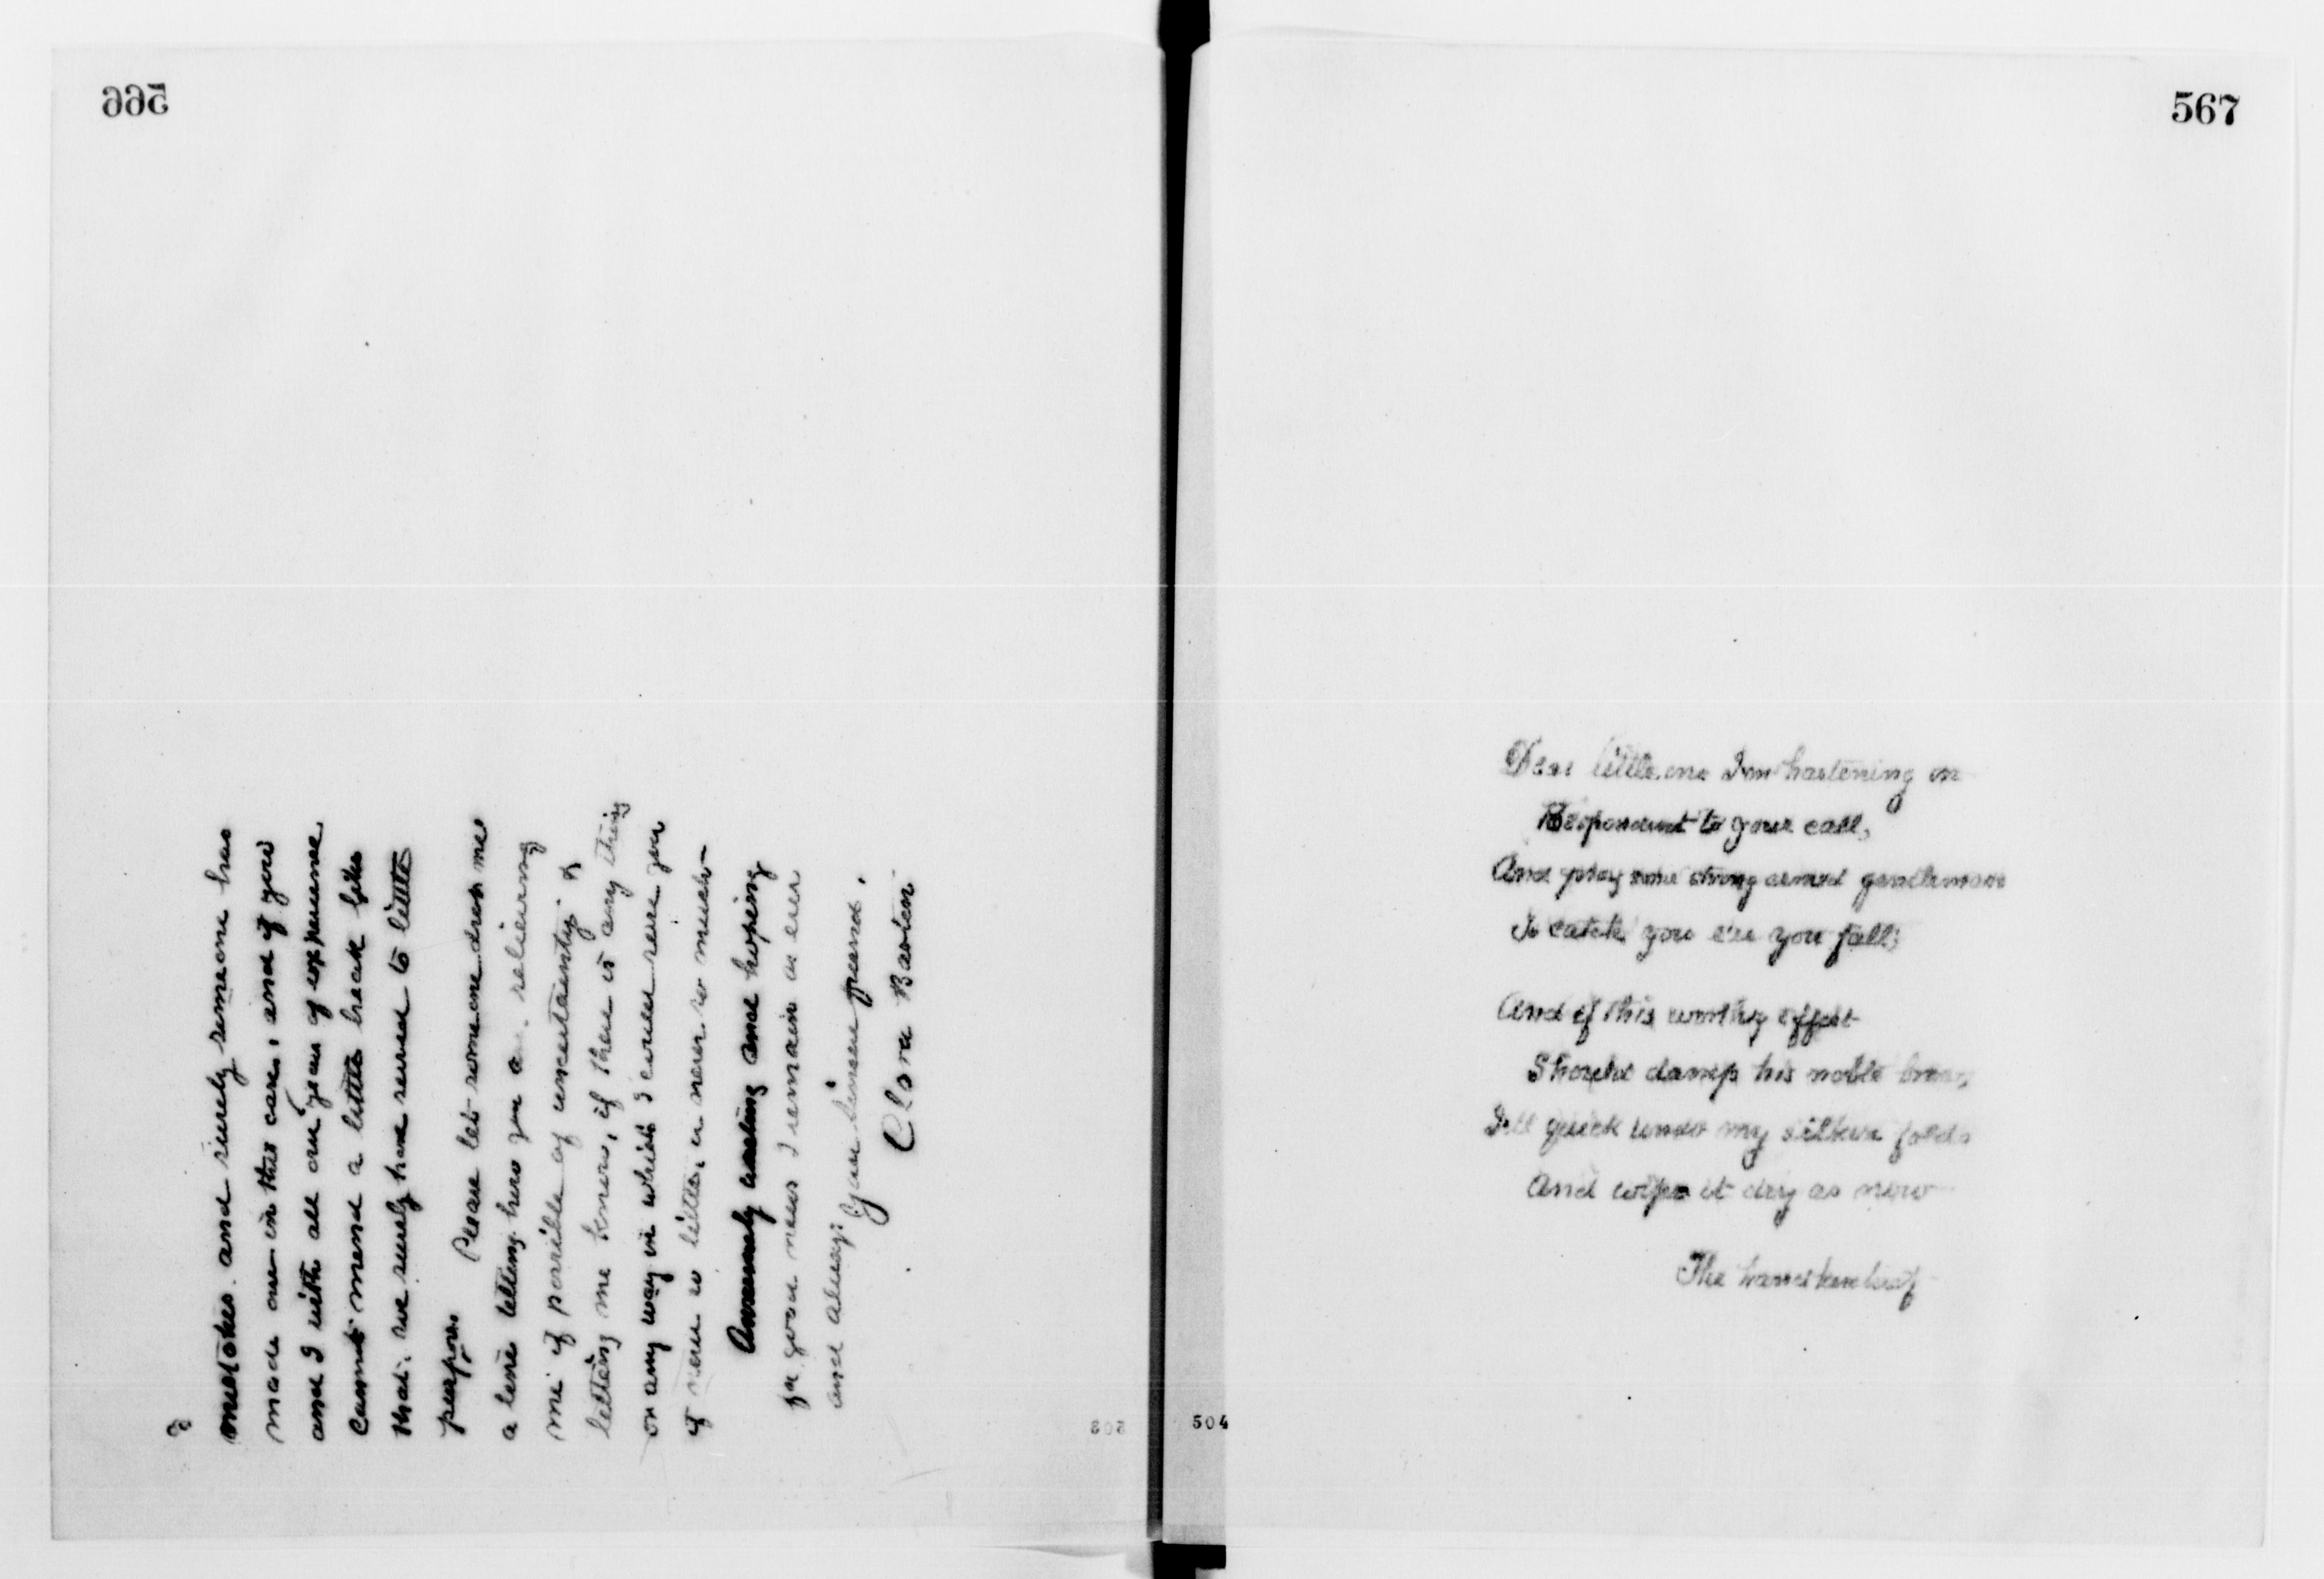 566
2
mistakes and surely someone has
made one in this case, and if you
and I with all our years of experience
cannot mend a little break like
that, we surely have served to little
purpose.
Please let some one drop me
a line telling how you are, relieving
me if possible of uncertainty &
letting me know, if there is any thing
or any way in which I could serve you
if ever so little, or never so much—
Anxiously waiting and hoping
for good news I remain as ever
and always
Your sincere friend.
Clara Barton
503
567
Dear little one I'm hastening on
Respondent to your call,
And pray some strong armed gentleman
To catch you e'er you fall;
And if this worthy effort
Should damp his noble brow,
I'll quick undo my silken folds
And wipe it dry as now—
The handkerchief
504